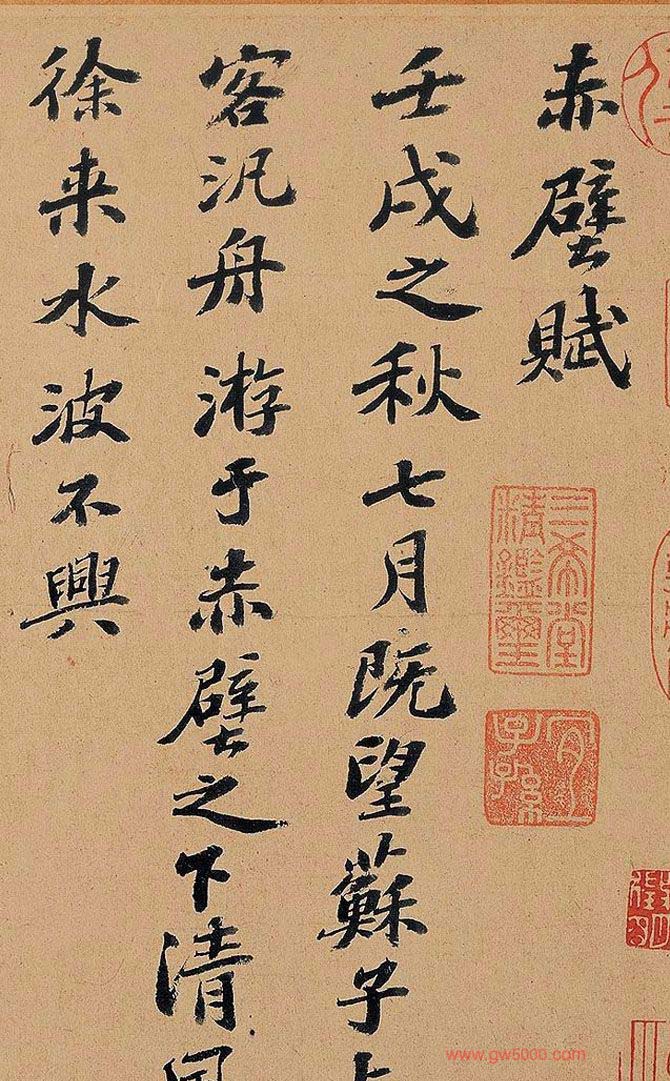 赤壁賦
壬戌之秋七月既望蘇子
客汎舟游于赤壁之下清
徐来水波不興
三希堂
精鑑璽
宜
子孫
www.gw5000.com